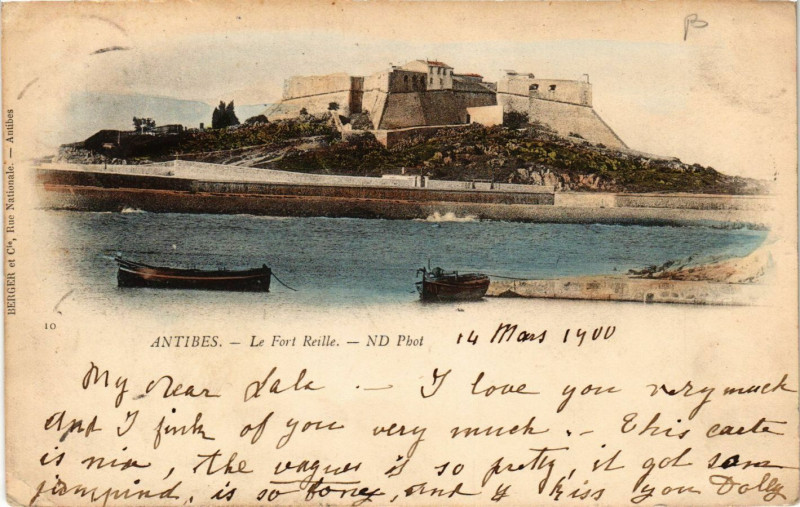 BERGER et Cie, Rue Nationale. — Antibes
10
ANTIBES. — Le Fort Reille. — ND Phot
14 Mars 1900
My dear Lala. — I love you very much
and I fink of you very much. — This carte
is nice, the vagues is so pretty, it got some
is so and I kiss you Dolly